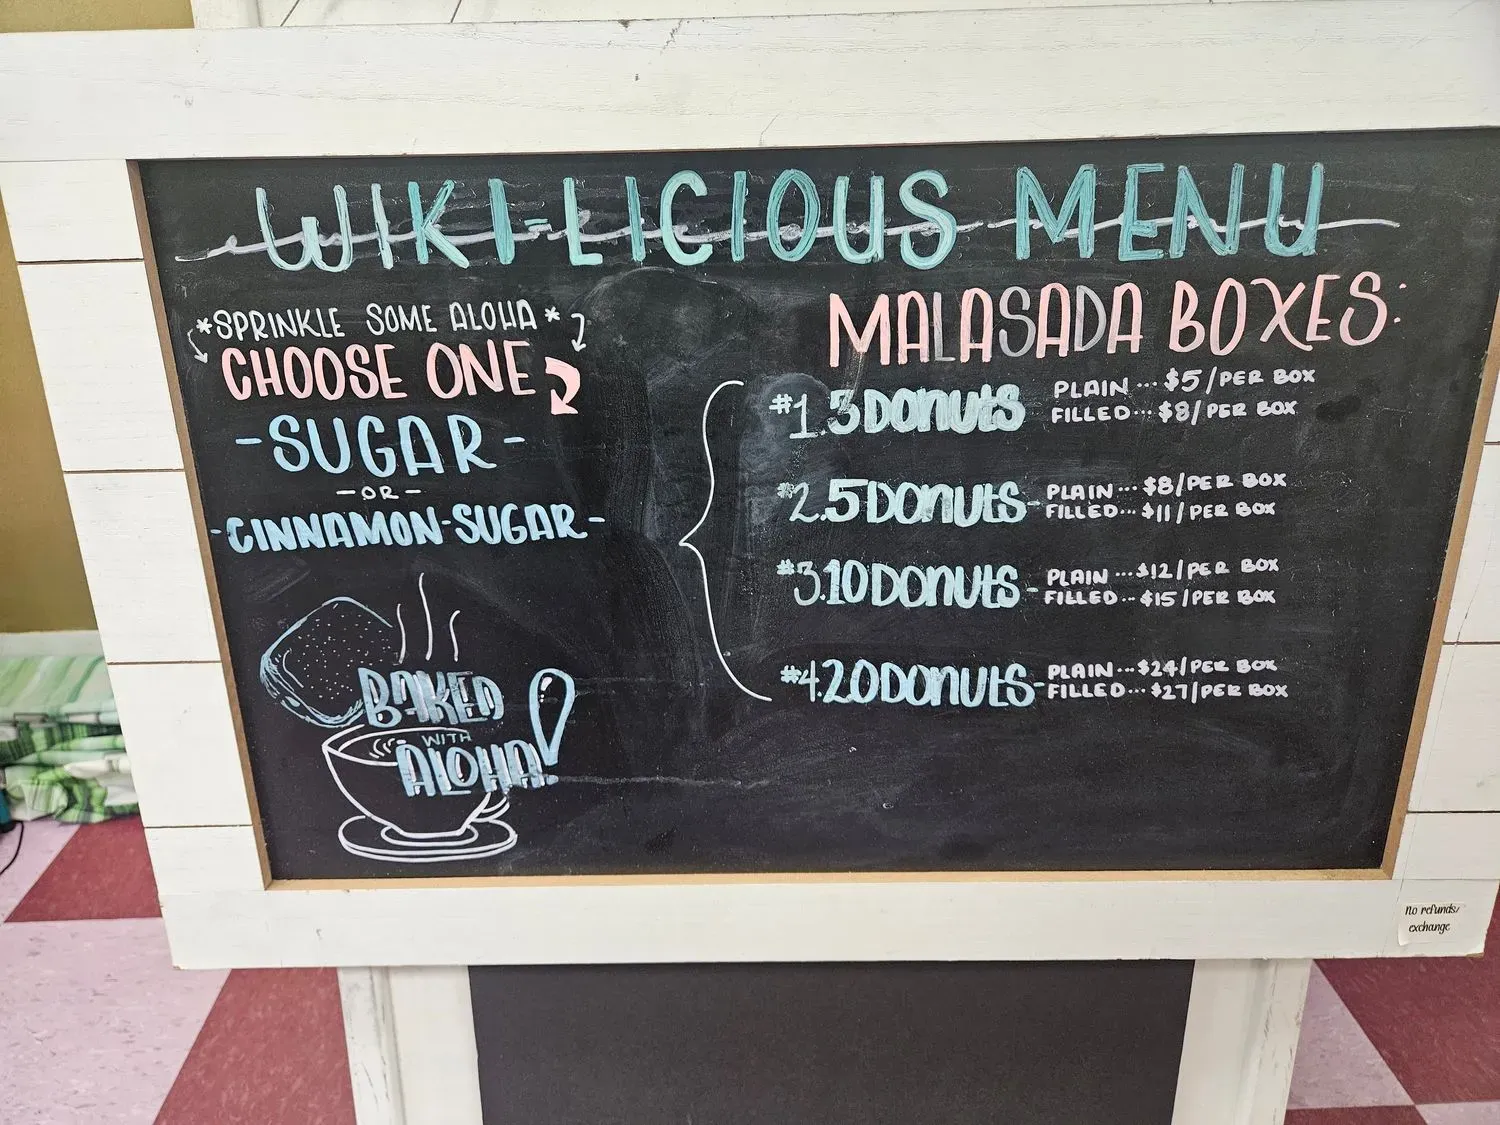 WIKI-LICIOUS MENU
*SPRINKLE SOME ALOHA*
CHOOSE ONE
-SUGAR-
-OR-
-CINNAMON-SUGAR-
BAKED
WITH
ALOHA!
MALASADA BOXES:
#1. 3 DONUTS
PLAIN... $5/PER BOX
FILLED... $8/PER BOX
#2. 5 DONUTS-
PLAIN... $8/PER BOX
FILLED... $11/PER BOX
#3. 10 DONUTS-
PLAIN... $12/PER BOX
FILLED... $15/PER BOX
#4. 20 DONUTS-
PLAIN... $24/PER BOX
FILLED... $27/PER BOX
No refunds/
exchange